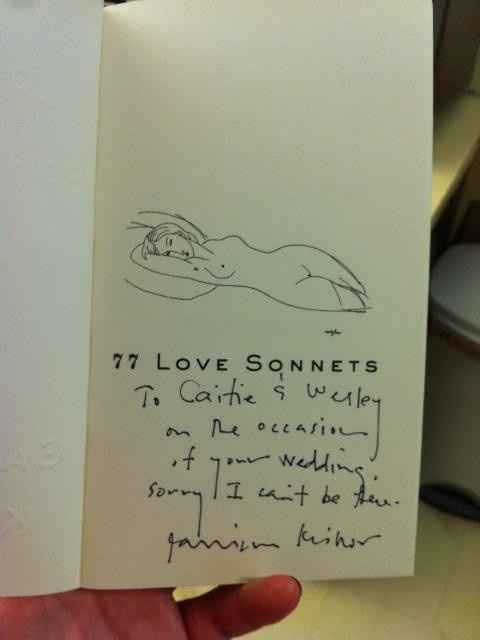 77 LOVE SONNETS
To Caitie & Wesley
on the occasion
of your wedding.
Sorry I can't be there.
Garrison Keillor